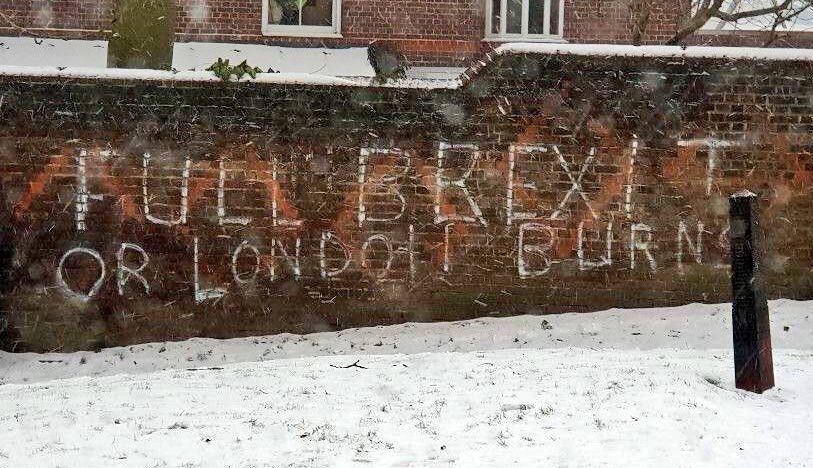 FULL BREXIT
OR LONDON BURNS